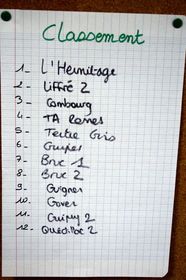 Classement
1_ L'Hermitage
2_ Liffré 2
3_ Combourg
4_ TA Rennes
5_ Tertre Gris
6_
7_ Bruc 1
8_ Bruc 2
9_ Guignen
10_ Goven
11_ Guipry 2
12_ Quédillac 2